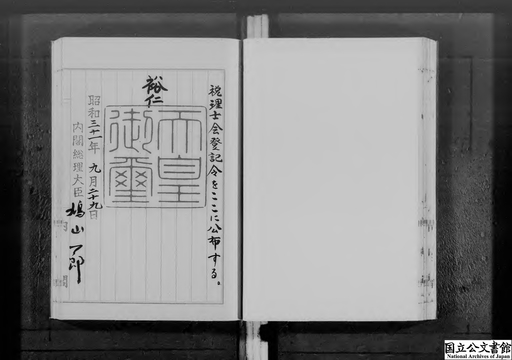 税理士会登記令をここに公布する。
裕仁
天皇
御璽
昭和三十一年九月二十九日
内閣総理大臣 鳩山一郎
国立公文書館
National Archives of Japan